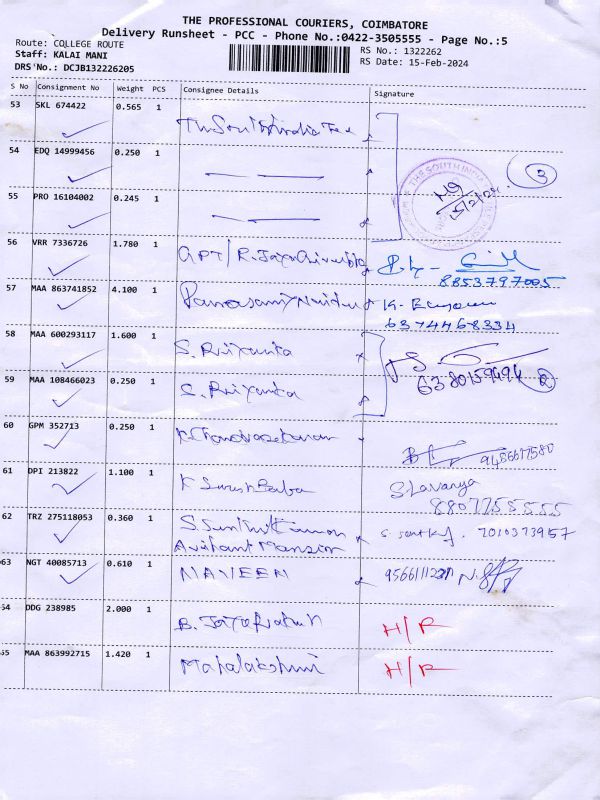 THE PROFESSIONAL COURIERS, COIMBATORE
Delivery Runsheet - PCC - Phone No.:0422-3505555 - Page No.:5
Route: COLLEGE ROUTE
Staff: KALAI MANI
DRS No.: DCJB132226205
RS No.: 1322262
RS Date: 15-Feb-2024
S No Consignment No Weight PCS Consignee Details Signature
53 SKL 674422 0.565 1
The South India Tex
54 EDQ 14999456 0.250 1
THE SOUTH INDIA
15/2/24
3
55 PRO 16104002 0.245 1
56 VRR 7336726 1.780 1
GPT/R.
8853797005
57 MAA 863741852 4.100 1
K.
6374468334
58 MAA 600293117 1.600 1
S. Priyanka
59 MAA 108466023 0.250 1
S. Priyanka
6380159494 2
60 GPM 352713 0.250 1
K. Chandrasekaran
9486617580
61 DPI 213822 1.100 1
K Suresh Babu S. Lavanya
8807755555
62 TRZ 275118053 0.360 1
S. Senthil Kumar
7010373957
Arihant Mansion
63 NGT 40085713 0.610 1
NAVEEN
64 DDG 238985 2.000 1
B. Jayaprakash H/R
65 MAA 863992715 1.420 1
Mahalakshmi H/R